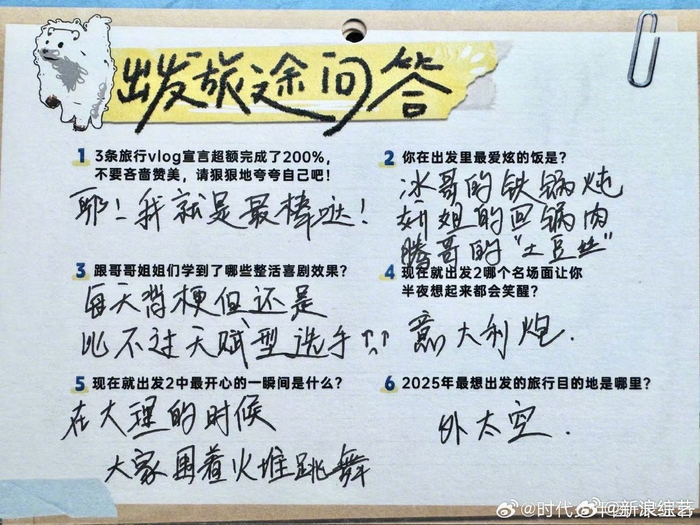 出发旅途问答
1 3条旅行vlog宣言超额完成了200%,
不要吝啬赞美,请狠狠地夸夸自己吧!
耶!我就是最棒哒!
2 你在出发里最爱炫的饭是?
冰哥的铁锅炖
妍姐的回锅肉
腾哥的“土豆丝”
3 跟哥哥姐姐们学到了哪些整活喜剧效果?
每天背梗但还是
比不过天赋型选手
4 现在就出发2哪个名场面让你
半夜想起来都会笑醒?
意大利炮.
5 现在就出发2中最开心的一瞬间是什么?
在大理的时候
大家围着火堆跳舞
6 2025年最想出发的旅行目的地是哪里?
外太空.
@时代
@新浪综艺